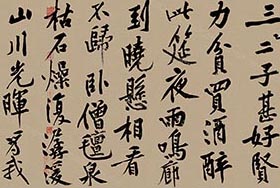 二三子甚好賢
力貧買酒醉
此筵夜雨鳴廊
到曉懸相看
不歸臥僧氈泉
枯石燥復潺湲
山川光暉為我